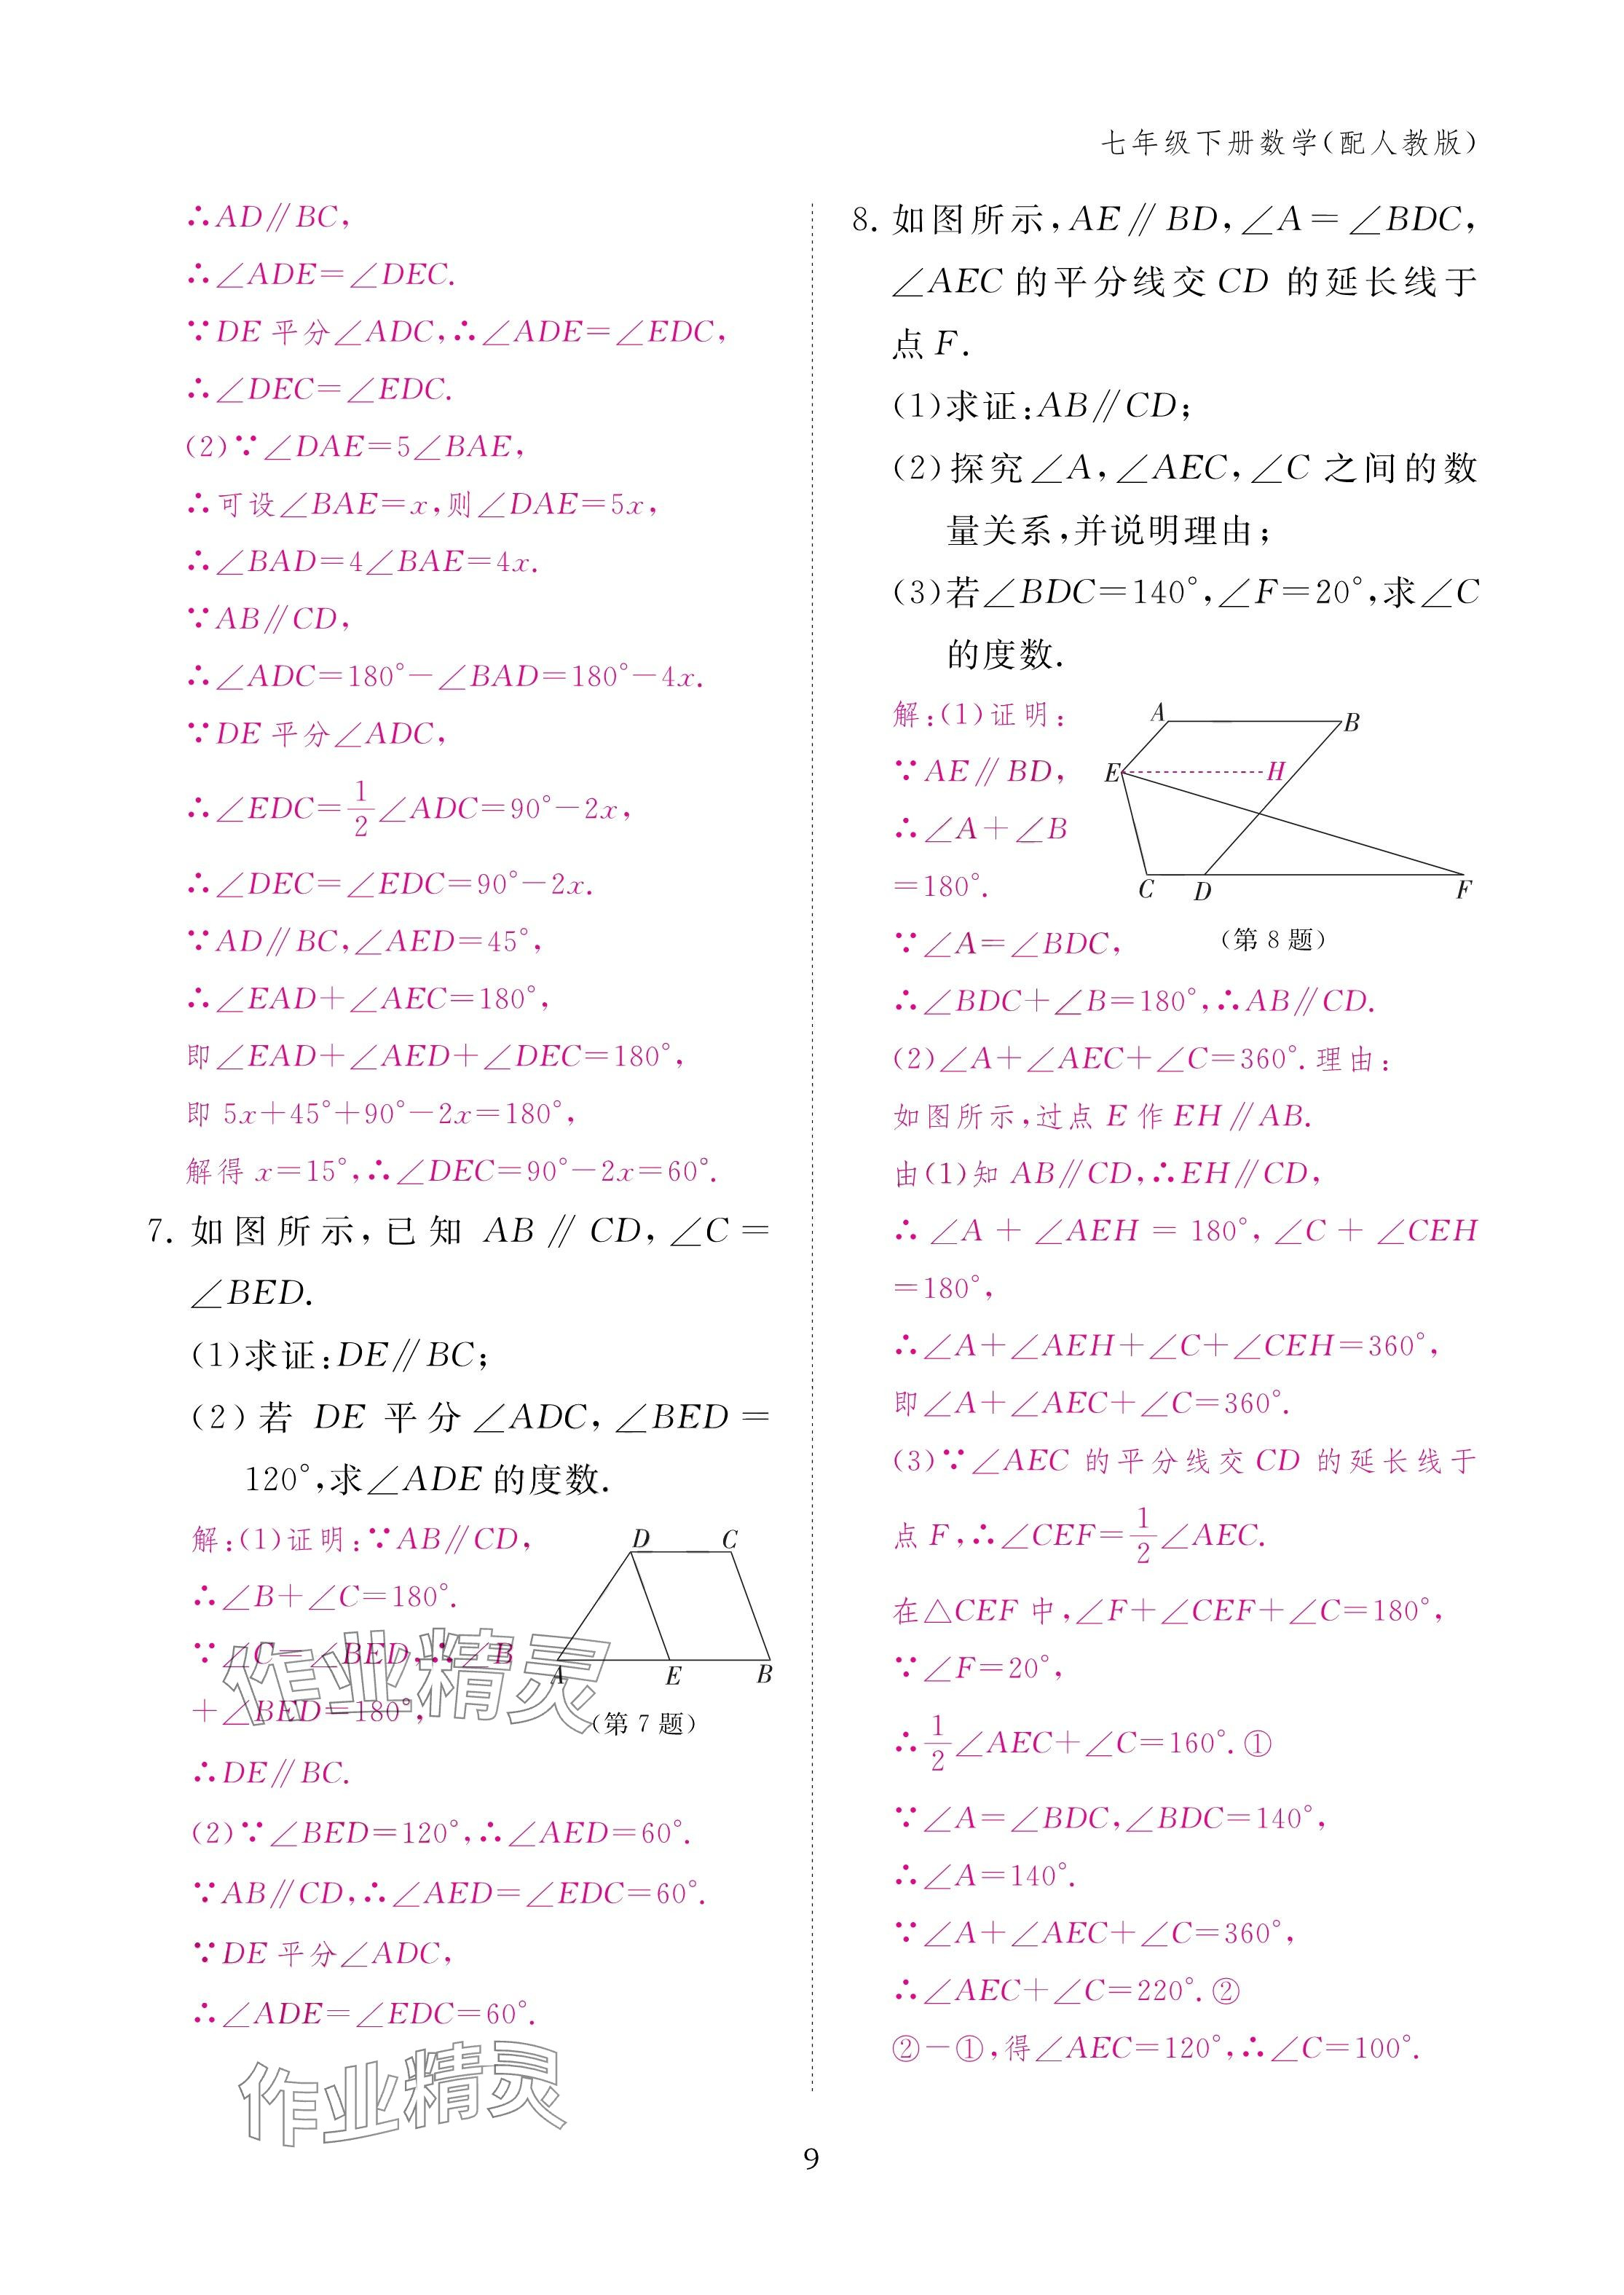 七年级下册数学(配人教版)
∴AD∥BC,
∴∠ADE=∠DEC.
∵DE平分∠ADC,∴∠ADE=∠EDC,
∴∠DEC=∠EDC.
(2)∵∠DAE=5∠BAE,
∴可设∠BAE=x,则∠DAE=5x,
∴∠BAD=4∠BAE=4x.
∵AB∥CD,
∴∠ADC=180°-∠BAD=180°-4x.
∵DE平分∠ADC,
∴∠EDC=1/2∠ADC=90°-2x,
∴∠DEC=∠EDC=90°-2x.
∵AD∥BC,∠AED=45°,
∴∠EAD+∠AEC=180°,
即∠EAD+∠AED+∠DEC=180°,
即5x+45°+90°-2x=180°,
解得x=15°,∴∠DEC=90°-2x=60°.
7. 如图所示,已知AB∥CD,∠C=
∠BED.
(1)求证:DE∥BC;
(2)若DE平分∠ADC,∠BED=
120°,求∠ADE的度数.
解:(1)证明:∵AB∥CD,
∴∠B+∠C=180°.
∵∠C=∠BED,∴∠B
+∠BED=180°,
∴DE∥BC.
D C
A E B
(第7题)
(2)∵∠BED=120°,∴∠AED=60°.
∵AB∥CD,∴∠AED=∠EDC=60°.
∵DE平分∠ADC,
∴∠ADE=∠EDC=60°.
8. 如图所示,AE∥BD,∠A=∠BDC,
∠AEC的平分线交CD的延长线于
点F.
(1)求证:AB∥CD;
(2)探究∠A,∠AEC,∠C之间的数
量关系,并说明理由;
(3)若∠BDC=140°,∠F=20°,求∠C
的度数.
解:(1)证明:
∵AE∥BD,
∴∠A+∠B
=180°.
∵∠A=∠BDC,
A B
E H
C D F
(第8题)
∴∠BDC+∠B=180°,∴AB∥CD.
(2)∠A+∠AEC+∠C=360°.理由:
如图所示,过点E作EH∥AB.
由(1)知AB∥CD,∴EH∥CD,
∴∠A+∠AEH=180°,∠C+∠CEH
=180°,
∴∠A+∠AEH+∠C+∠CEH=360°,
即∠A+∠AEC+∠C=360°.
(3)∵∠AEC的平分线交CD的延长线于
点F,∴∠CEF=1/2∠AEC.
在△CEF中,∠F+∠CEF+∠C=180°,
∵∠F=20°,
∴1/2∠AEC+∠C=160°.①
∵∠A=∠BDC,∠BDC=140°,
∴∠A=140°.
∵∠A+∠AEC+∠C=360°,
∴∠AEC+∠C=220°.②
②-①,得∠AEC=120°,∴∠C=100°.
作业精灵
作业精灵
9